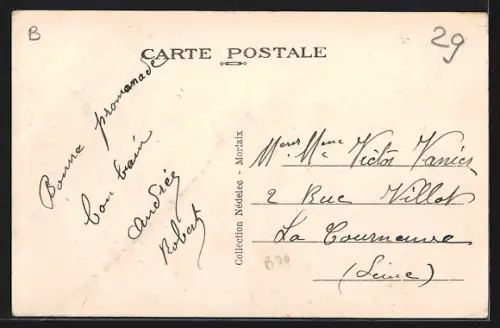 B
29
CARTE POSTALE
Bonne promenade
bon bain
Andrée
Robert
Collection Nédelec - Morlaix
Mme Victor
2 Rue Villot
La Courneuve
(Seine)
B70